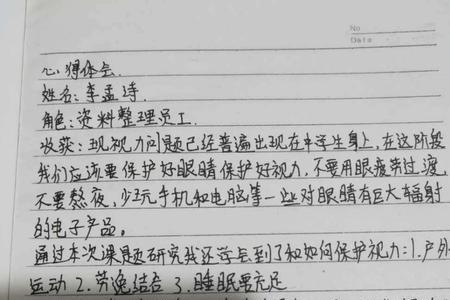 No
Date
心得体会.
姓名:李孟诗.
角色:资料整理员工.
收获:现视力问题已经普遍出现在中学生身上,在这阶段
我们应该要保护好眼睛保护好视力,不要用眼疲劳过渡,
不要熬夜,少玩手机和电脑等一些对眼睛有巨大辐射
的电子产品。
通过本次课题研究我还学会到了和如何保护视力:1.户外
运动 2.劳逸结合 3.睡眠要充足